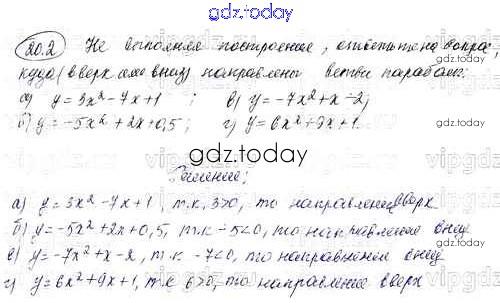 gdz.today
20.2 Не выполняя построения, ответьте на вопрос,
куда (вверх или вниз) направлены ветви параболы:
а) y=3x²-7x+1; в) y=-7x²+x-2;
б) y=-5x²+2x+0,5; г) y=6x²+9x+1.
gdz.today
Решение:
а) y=3x²-7x+1, т.к. 3>0, то направление вверх
б) y=-5x²+2x+0,5, т.к. -5<0, то направление вниз
в) y=-7x²+x-2, т.к. -7<0, то направление вниз
г) y=6x²+9x+1, т.к 6>0, то направление вверх
gdz.today